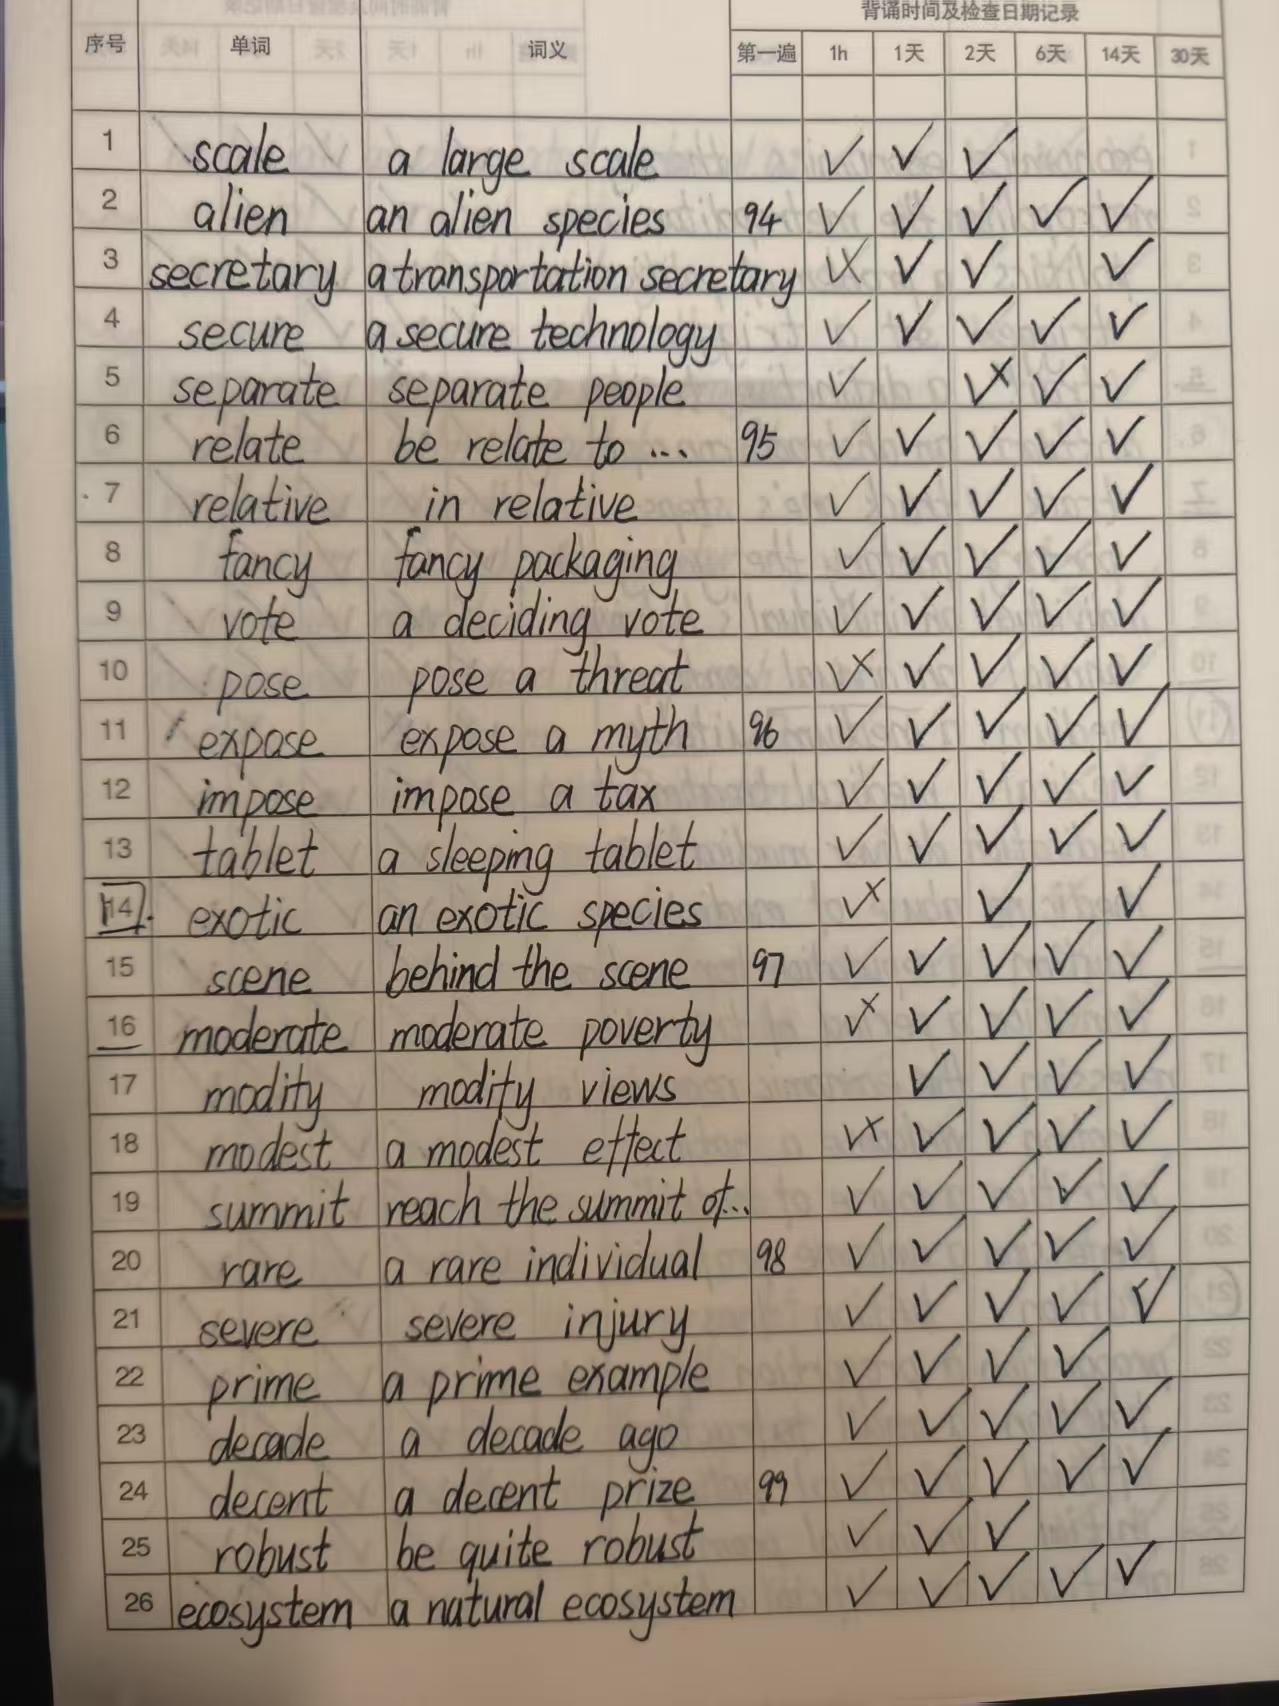 背诵时间及检查日期记录
序号 单词 词义 第一遍 1h 1天 2天 6天 14天 30天
1 scale a large scale ✓ ✓ ✓
2 alien an alien species 94 ✓ ✓ ✓ ✓ ✓
3 secretary a transportation secretary ✓× ✓ ✓ ✓
4 secure a secure technology ✓ ✓ ✓ ✓ ✓
5 separate separate people ✓ ✓× ✓ ✓
6 relate be relate to ... 95 ✓ ✓ ✓ ✓ ✓
7 relative in relative ✓ ✓ ✓ ✓ ✓
8 fancy fancy packaging ✓ ✓ ✓ ✓ ✓
9 vote a deciding vote ✓ ✓ ✓ ✓ ✓
10 pose pose a threat ✓× ✓ ✓ ✓ ✓
11 expose expose a myth 96 ✓ ✓ ✓ ✓ ✓
12 impose impose a tax ✓ ✓ ✓ ✓ ✓
13 tablet a sleeping tablet ✓ ✓ ✓ ✓ ✓
14 exotic an exotic species ✓× ✓ ✓
15 scene behind the scene 97 ✓ ✓ ✓ ✓ ✓
16 moderate moderate poverty ✓× ✓ ✓ ✓ ✓
17 modify modify views ✓ ✓ ✓ ✓
18 modest a modest effect ✓× ✓ ✓ ✓ ✓
19 summit reach the summit of... ✓ ✓ ✓ ✓ ✓
20 rare a rare individual 98 ✓ ✓ ✓ ✓ ✓
21 severe severe injury ✓ ✓ ✓ ✓ ✓
22 prime a prime example ✓ ✓ ✓ ✓
23 decade a decade ago ✓ ✓ ✓ ✓ ✓
24 decent a decent prize 99 ✓ ✓ ✓ ✓ ✓
25 robust be quite robust ✓ ✓ ✓
26 ecosystem a natural ecosystem ✓ ✓ ✓ ✓ ✓